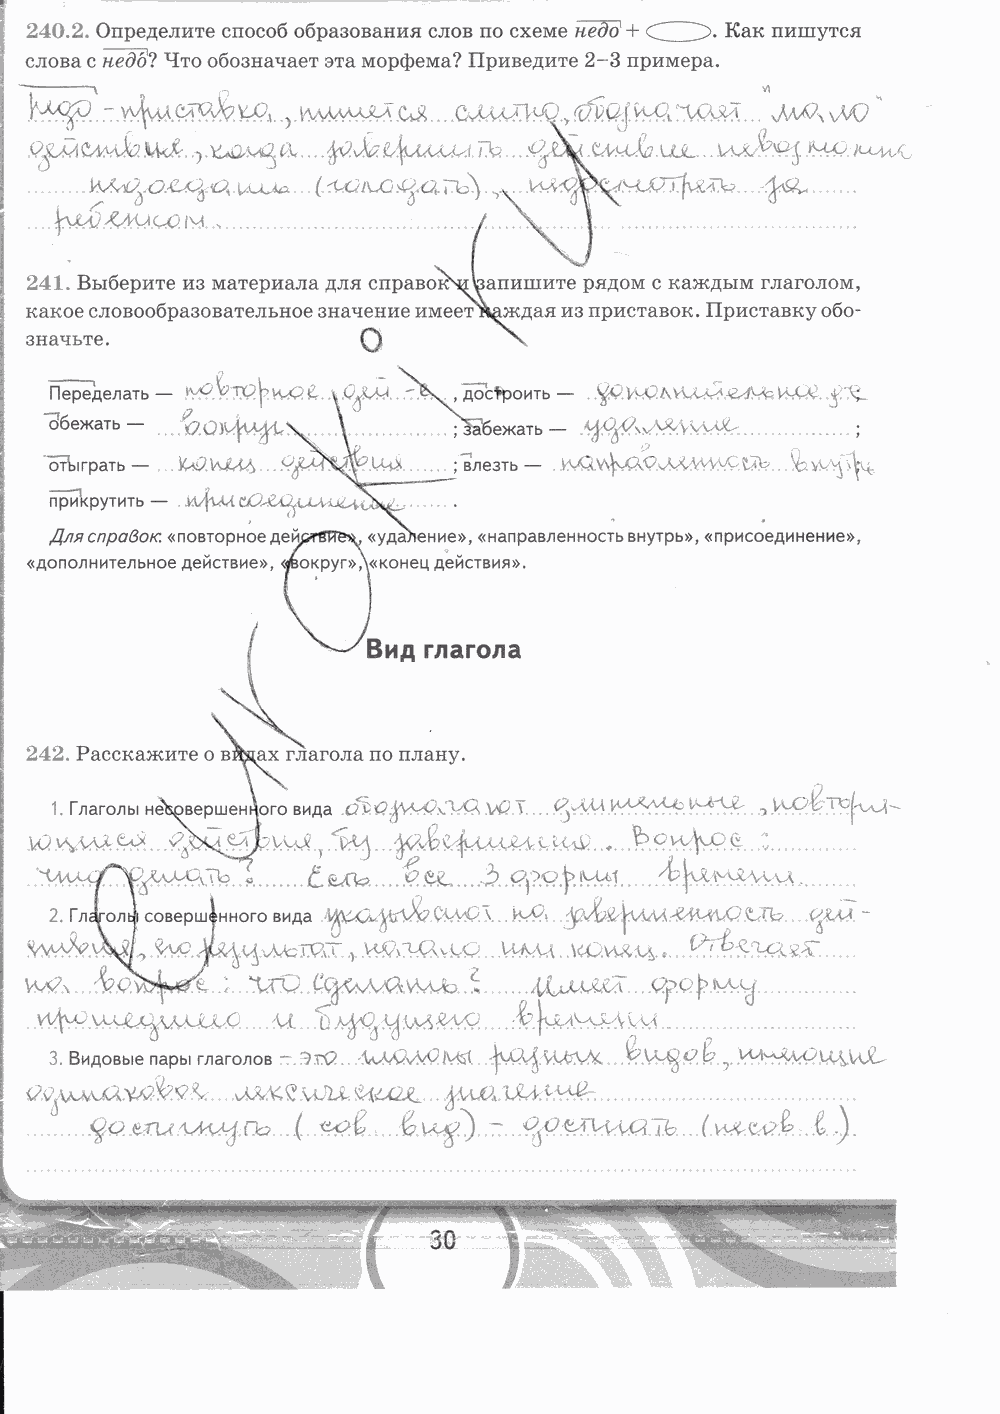 240.2. Определите способ образования слов по схеме недо + . Как пишутся
слова с недо? Что обозначает эта морфема? Приведите 2–3 примера.
Недо - приставка, пишется слитно, обозначает "мало"
действия, когда завершить действие невозможно
недоедать (голодать), недосмотреть за
ребенком.
241. Выберите из материала для справок и запишите рядом с каждым глаголом,
какое словообразовательное значение имеет каждая из приставок. Приставку обо-
значьте.
Переделать — повторное дей-е, достроить — дополнительное д-е;
обежать — вокруг; забежать — удаление;
отыграть — конец действия; влезть — направленность внутрь
прикрутить — присоединение.
Для справок: «повторное действие», «удаление», «направленность внутрь», «присоединение»,
«дополнительное действие», «вокруг», «конец действия».
Вид глагола
242. Расскажите о видах глагола по плану.
1. Глаголы несовершенного вида обозначают длительные, повторя-
ющиеся действия, без завершения. Вопрос:
что делать? Есть все 3 формы времени.
2. Глаголы совершенного вида указывают на завершенность дей-
ствия, его результат, начало или конец. Отвечает
на вопрос: что сделать? Имеет форму
прошедшего и будущего времени
3. Видовые пары глаголов - это глаголы разных видов, имеющие
одинаковое лексическое значение
достигнуть (сов вид) - достигать (несов в.)
30